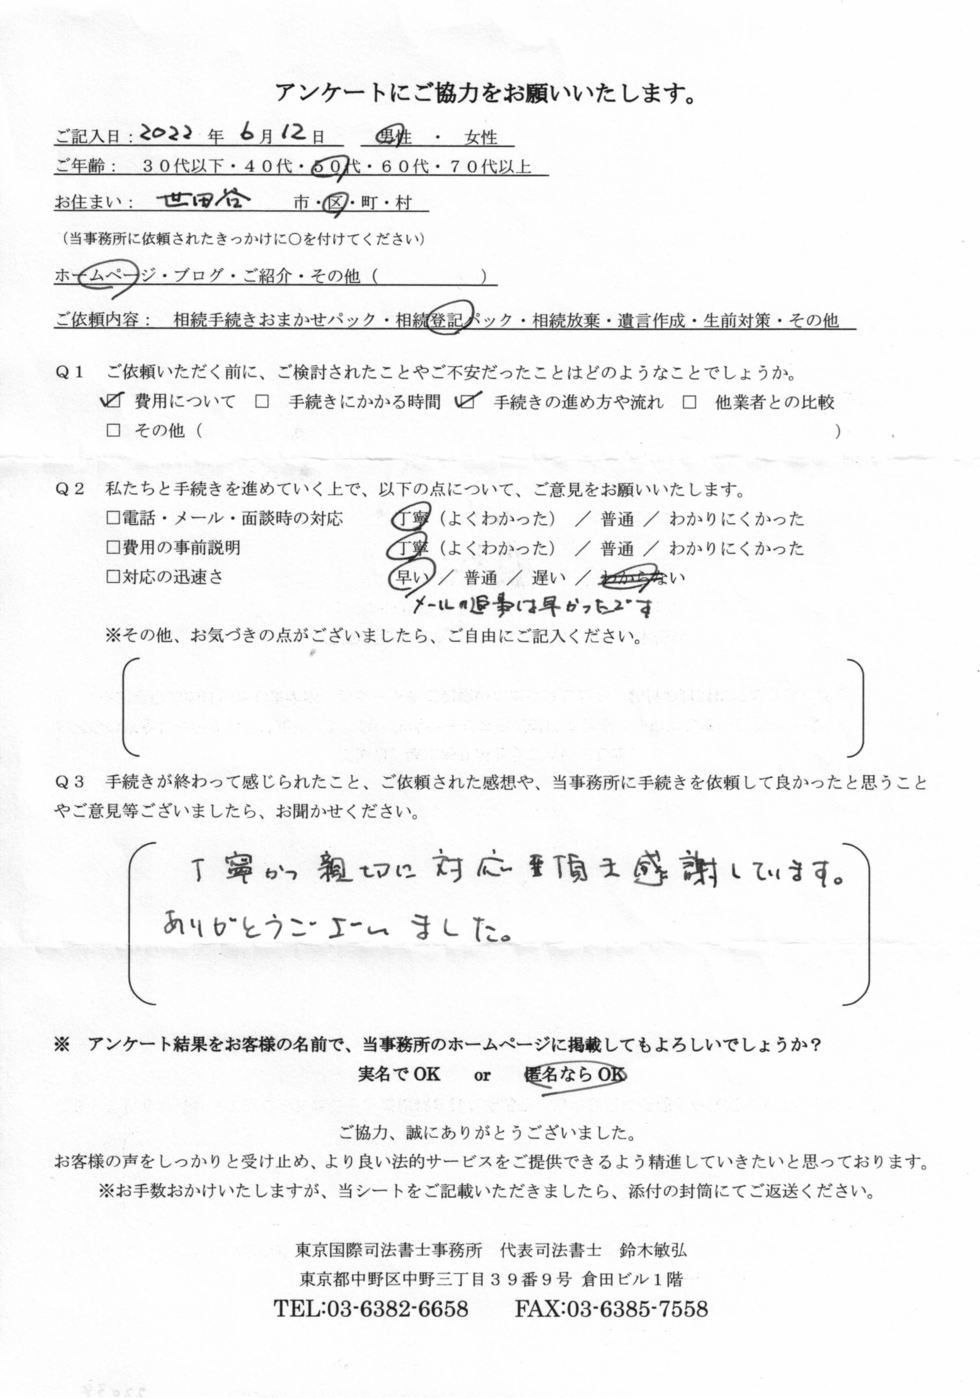 アンケートにご協力をお願いいたします。
ご記入日：2022 年 6月 12日　男性 ・ 女性
ご年齢： ３０代以下・４０代・５０代・６０代・７０代以上
お住まい： 世田谷 市・区・町・村
（当事務所に依頼されたきっかけに○を付けてください）
ホームページ・ブログ・ご紹介・その他（ ）
ご依頼内容： 相続手続きおまかせパック・相続登記パック・相続放棄・遺言作成・生前対策・その他
Ｑ１ ご依頼いただく前に、ご検討されたことやご不安だったことはどのようなことでしょうか。
☑ 費用について □ 手続きにかかる時間 ☑ 手続きの進め方や流れ □ 他業者との比較
□ その他（ ）
Ｑ２ 私たちと手続きを進めていく上で、以下の点について、ご意見をお願いいたします。
□電話・メール・面談時の対応 丁寧（よくわかった） ／ 普通 ／ わかりにくかった
□費用の事前説明 丁寧（よくわかった） ／ 普通 ／ わかりにくかった
□対応の迅速さ 早い ／ 普通 ／ 遅い ／ わからない
メールの返事は早かったです
※その他、お気づきの点がございましたら、ご自由にご記入ください。
Ｑ３ 手続きが終わって感じられたこと、ご依頼された感想や、当事務所に手続きを依頼して良かったと思うこと
やご意見等ございましたら、お聞かせください。
丁寧かつ親切に対応を頂き感謝しています。
ありがとうございました。
※ アンケート結果をお客様の名前で、当事務所のホームページに掲載してもよろしいでしょうか？
実名でOK or 匿名ならOK
ご協力、誠にありがとうございました。
お客様の声をしっかりと受け止め、より良い法的サービスをご提供できるよう精進していきたいと思っております。
※お手数おかけいたしますが、当シートをご記載いただきましたら、添付の封筒にてご返送ください。
東京国際司法書士事務所 代表司法書士 鈴木敏弘
東京都中野区中野三丁目３９番９号 倉田ビル１階
TEL:03-6382-6658 FAX:03-6385-7558